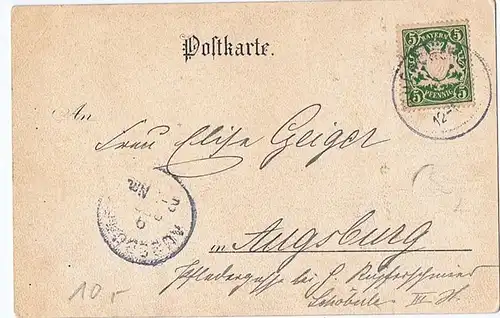 Postkarte.
5 BAYERN 5
5 PFENNIG 5
An
Frau Elise Geiger
in Augsburg
Pfladergasse bei H. Kupferschmied
Schöberle III. St.
AUGSBURG
Nm.
10,-